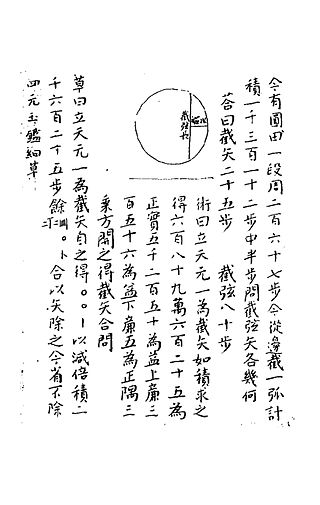 今有圓田一段周二百六十七步今從邊截一弧計
積一千三百一十二步中半步問截弦矢各幾何
荅曰截矢二十五步　截弦八十步
截弦長
術曰立天元一為截矢如積求之
得六百八十九萬六百二十五為
正實五千二百五十為益上廉三
百五十六為益下廉五為正隅三
乘方開之得截矢合問
草曰立天元一為截矢自之得。。丨以減倍積二
千六百二十五步餘。卜合以矢除之今省不除
四元玉鑑細草